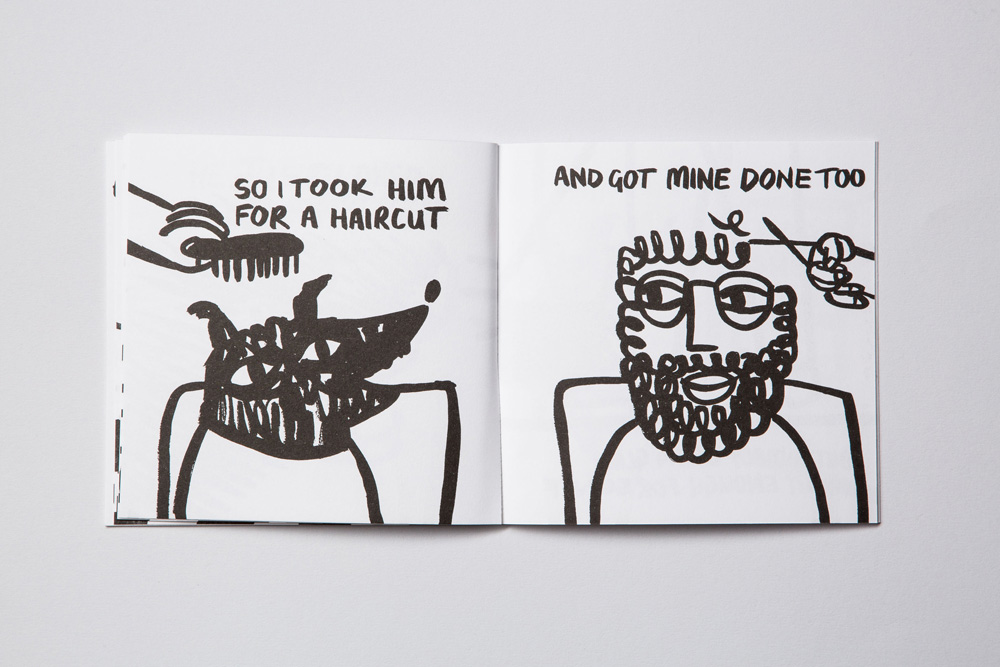 SO I TOOK HIM
FOR A HAIRCUT
AND GOT MINE DONE TOO